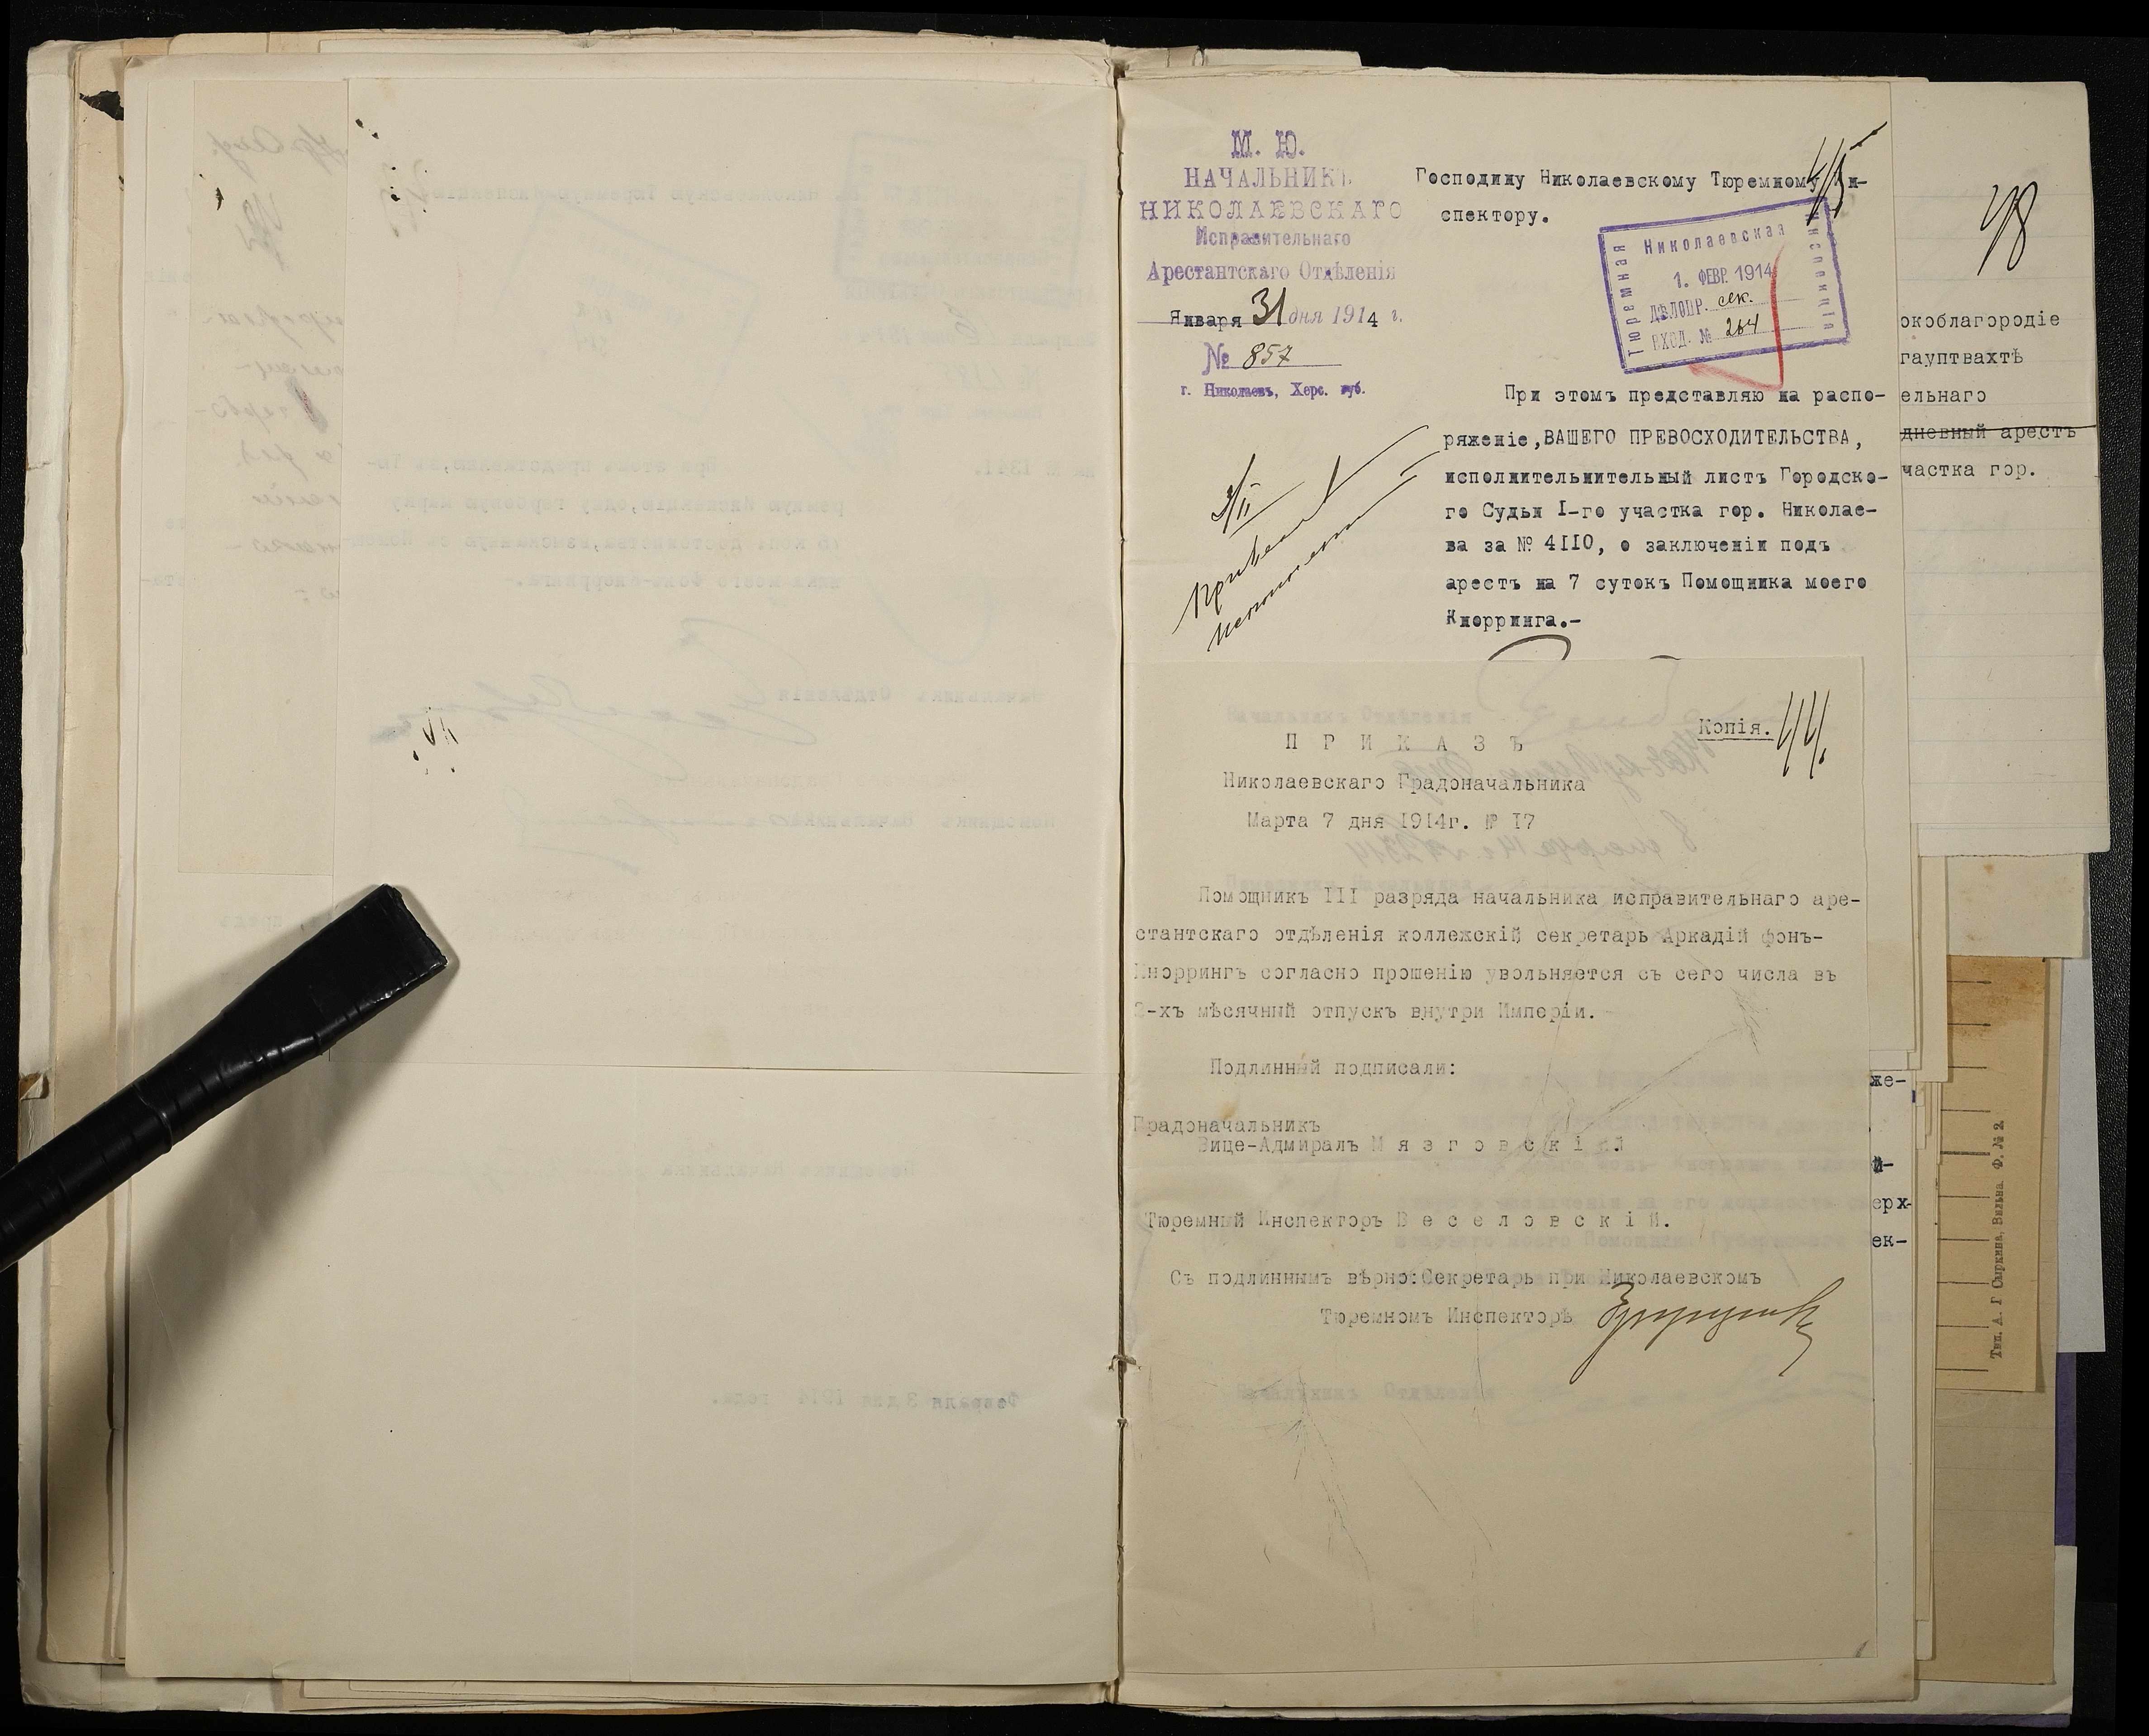 М. Ю.
НАЧАЛЬНИКЪ
НИКОЛАЕВСКАГО
Исправительнаго
Арестантскаго Отдѣленія
Января 31 дня 1914 г.
№ 857
г. Николаевъ, Херс. губ.
45
Господину Николаевскому Тюремному Ин-
спектору.
Николаевская
Тюремная
Инспекція
1. ФЕВР. 1914
ДѢЛОПР. сек.
ВХОД. № 264
При этомъ представляю на распо-
ряженіе,ВАШЕГО ПРЕВОСХОДИТЕЛЬСТВА,
исполнительнительный листъ Городско-
го Судьи I-го участка гор. Николае-
ва за № 4IIO, о заключеніи подъ
арестъ на 7 сутокъ Помощника моего
Кнорринга.-
3/II
Копія.
44.
П Р И К А З Ъ
Николаевскаго Градоначальника
Марта 7 дня I9I4г. № I7
Помощникъ III разряда начальника исправительнаго аре-
стантскаго отдѣленія коллежскій секретарь Аркадій фонъ-
Кноррингъ согласно прошенію увольняется съ сего числа въ
-хъ мѣсячный отпускъ внутри Имперіи.
Подлинный подписали:
Градоначальникъ
Вице-Адмиралъ М я з г о в с к і й
Тюремный Инспекторъ В е с е л о в с к і й.
Съ подлиннымъ вѣрно:Секретарь при Николаевскомъ
Тюремномъ Инспекторѣ
48
окоблагородіе
гауптвахтѣ
ельнаго
дневный арестъ
частка гор.
же-
й-
ерх-
ек-
Тип. А. Г. Сыркина, Вильна. Ф. № 2.